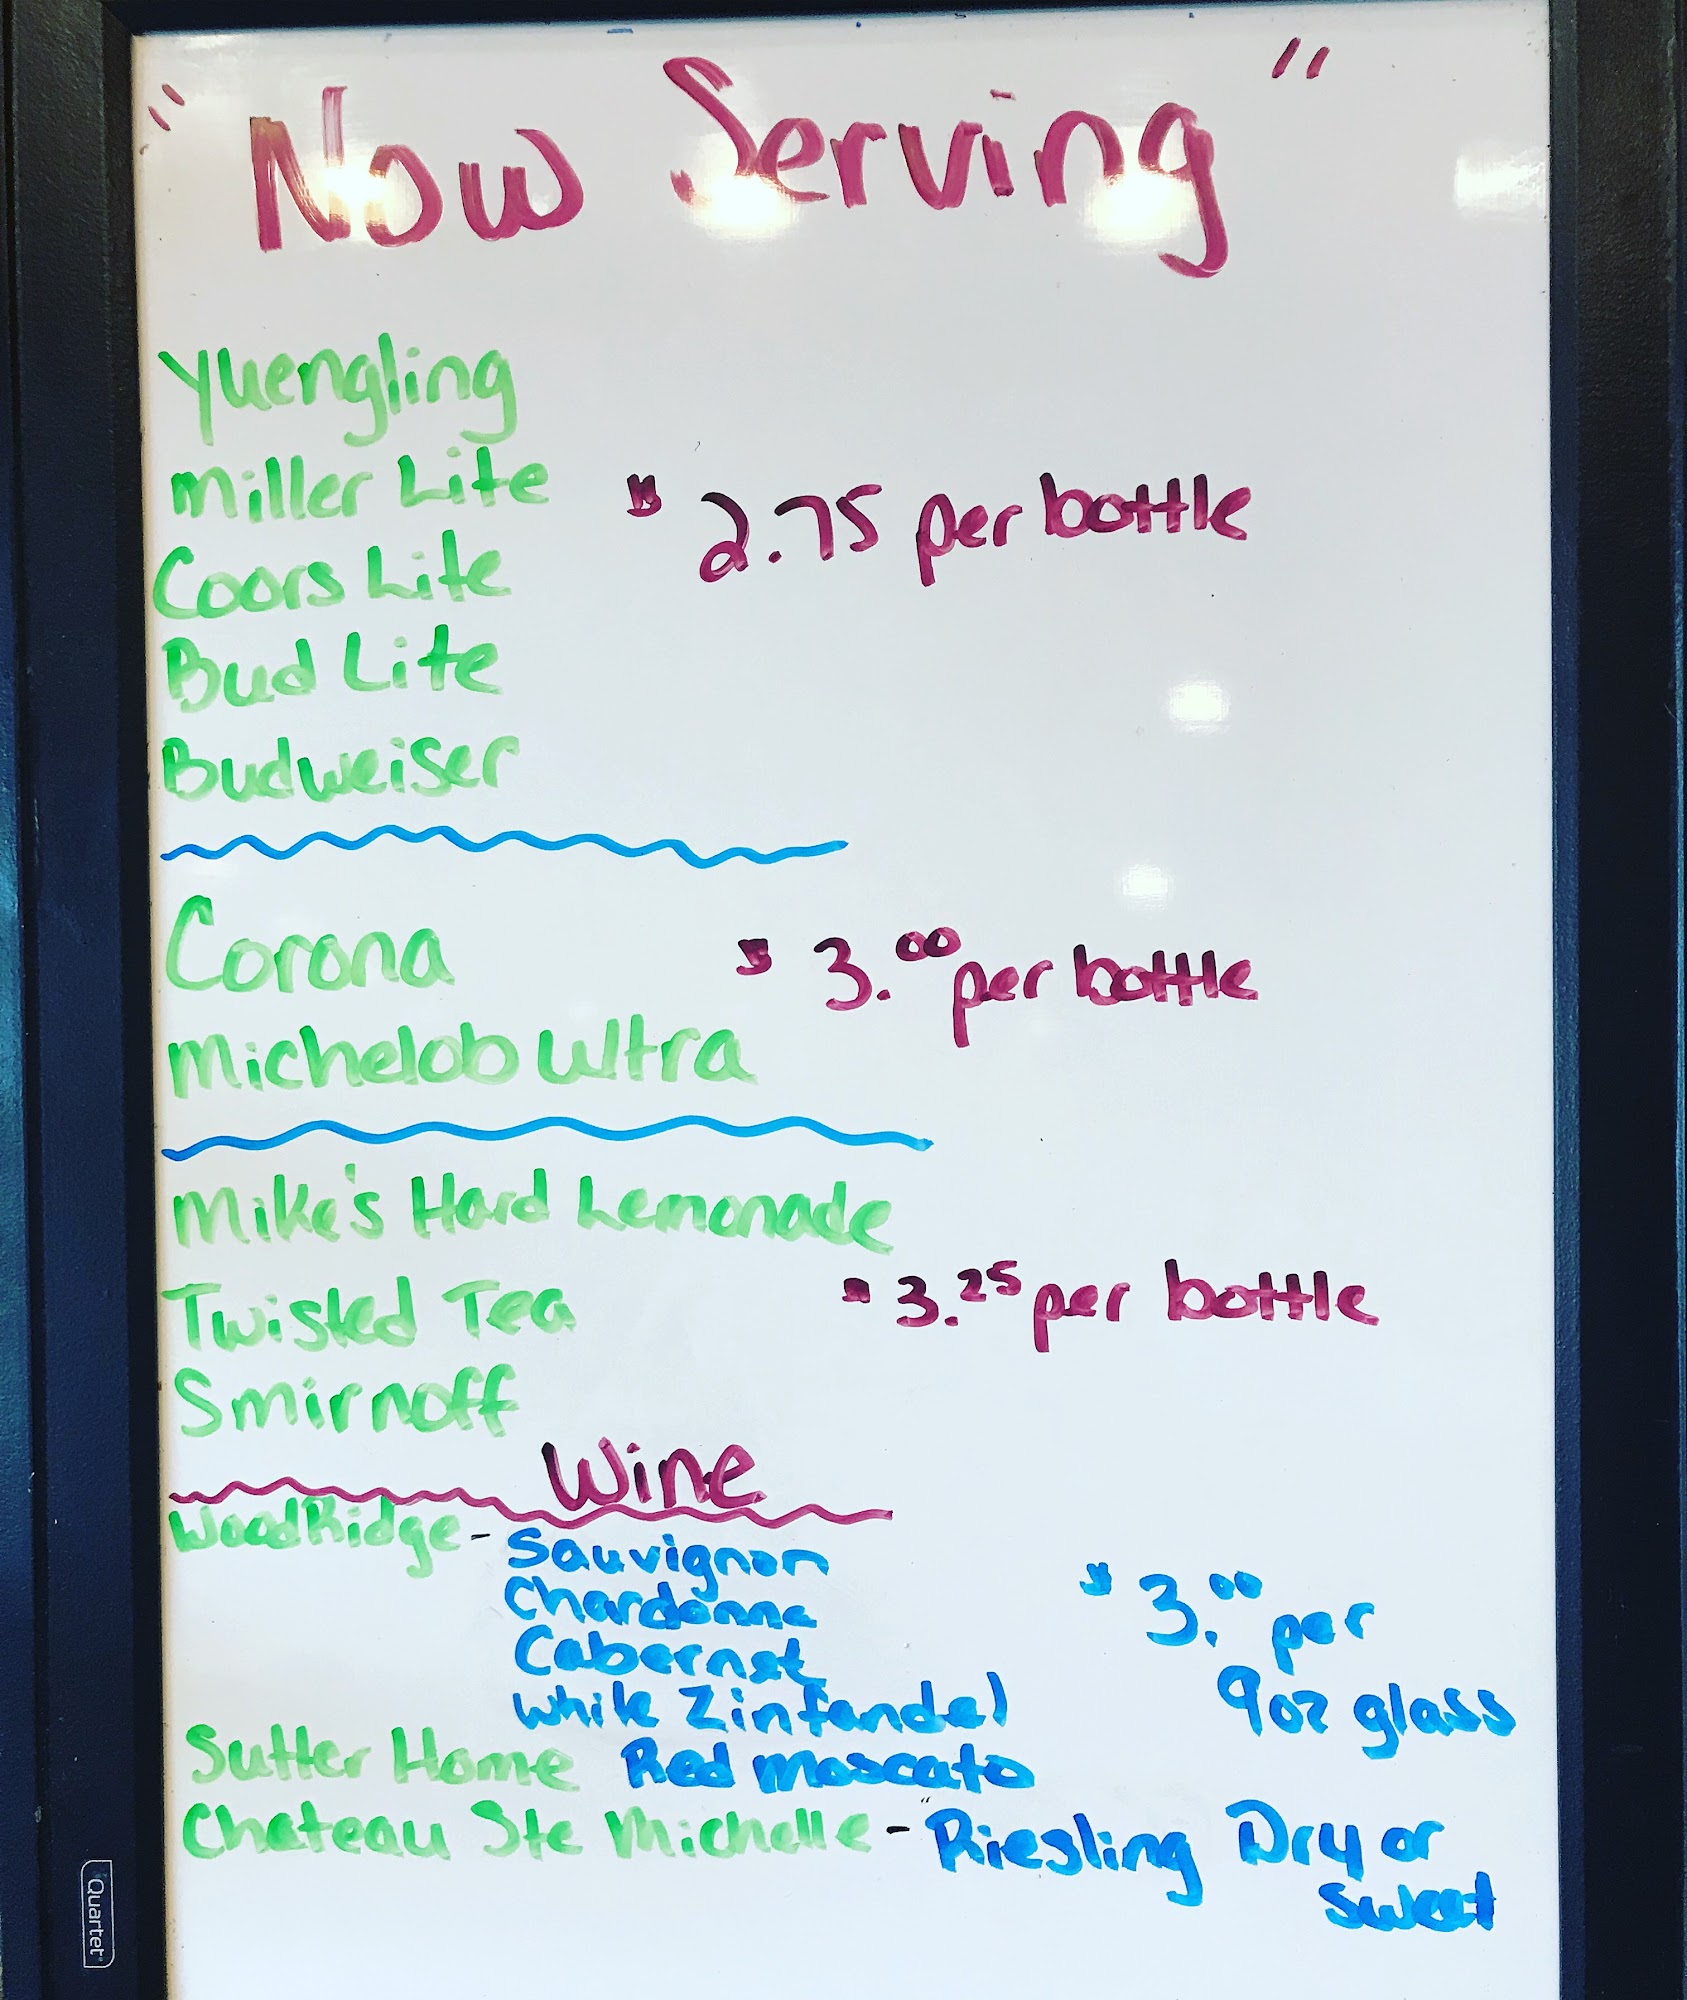 "Now Serving"
Yuengling
Miller Lite
$2.75 per bottle
Coors Lite
Bud Lite
Budweiser
Corona
$3.00 per bottle
Michelob Ultra
Mike's Hard Lemonade
Twisted Tea
$3.25 per bottle
Smirnoff
Wine
WoodRidge - Sauvignon
Chardonna
Cabernet
White Zinfandel
$3.00 per
9oz glass
Sutter Home Red Moscato
Chateau Ste Michelle - Riesling Dry or
sweet
Quartet